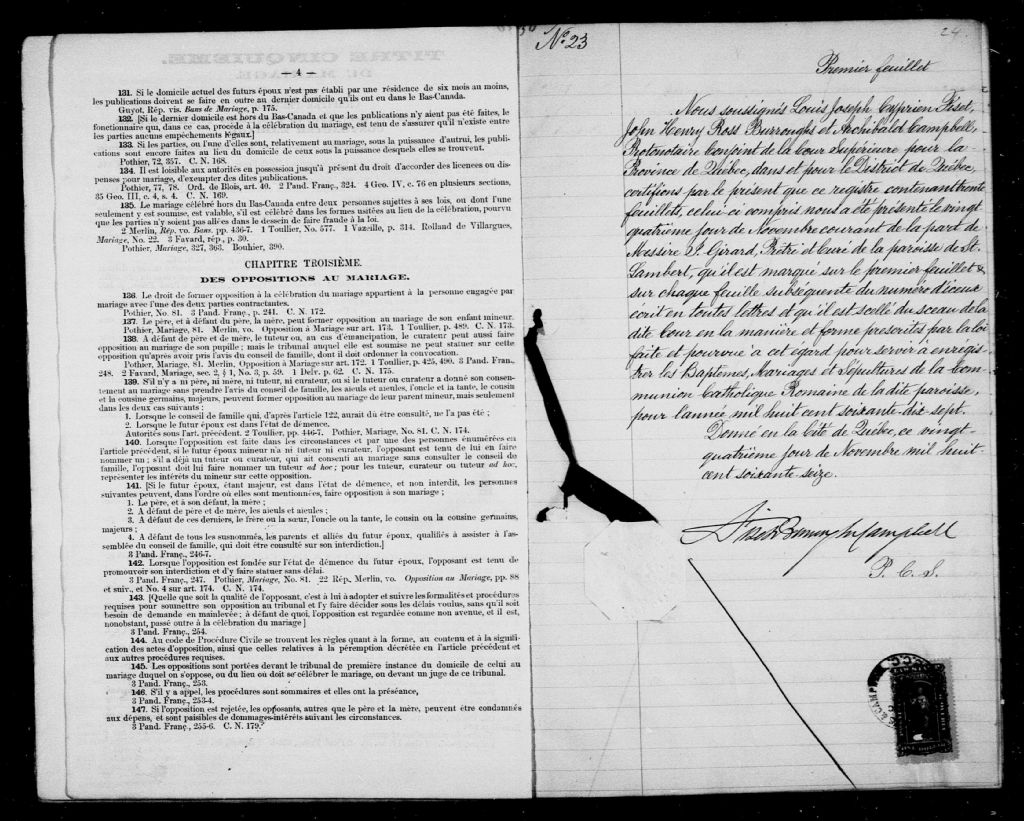 — 4 —
131. Si le domicile actuel des futurs époux n'est pas établi par une résidence de six mois au moins,
les publications doivent se faire en outre au dernier domicile qu'ils ont eu dans le Bas-Canada.
Guyot, Rép. vis. Bans de Mariage, p. 175.
132. [Si le dernier domicile est hors du Bas-Canada et que les publications n'y aient pas été faites, le
fonctionnaire qui, dans ce cas, procède à la célébration du mariage, est tenu de s'assurer qu'il n'existe entre
les parties aucuns empêchements légaux.]
133. Si les parties, ou l'une d'elles sont, relativement au mariage, sous la puissance d'autrui, les publi-
cations sont encore faites au lieu du domicile de ceux sous la puissance desquels elles se trouvent.
Pothier, 72, 357. C. N. 168.
134. Il est loisible aux autorités en possession jusqu'à présent du droit d'accorder des licences ou dis-
penses pour mariage, d'exempter des dites publications.
Pothier, 77, 78. Ord. de Blois, art. 40. 2 Pand. Franç., 324. 4 Geo. IV, c. 76 en plusieurs sections,
35 Geo. III, c. 4, s. 4. C. N. 169.
135. Le mariage célébré hors du Bas-Canada entre deux personnes sujettes à ses lois, ou dont l'une
seulement y est soumise, est valable, s'il est célébré dans les formes usitées au lieu de la célébration, pourvu
que les parties n'y soient pas allées dans le dessein de faire fraude à la loi.
2 Merlin, Rép. vo. Bans. pp. 436-7. 1 Toullier, No. 577. 1 Vazeille, p. 314. Rolland de Villargues,
Mariage, No. 22. 3 Favard, rép., p. 30.
Pothier, Mariage, 327, 363. Bouhier, 390.
CHAPITRE TROISIÈME.
DES OPPOSITIONS AU MARIAGE.
136. Le droit de former opposition à la célébration du mariage appartient à la personne engagée par
mariage avec l'une des deux parties contractantes.
Pothier, No. 81. 3 Pand. Franç., p. 241. C. N. 172.
137. Le père, et à défaut du père, la mère, peut former opposition au mariage de son enfant mineur.
Pothier, Mariage, 81. Merlin, vo. Opposition à Mariage sur art. 173. 1 Toullier, p. 489. C. N. 173.
138. A défaut de père et de mère, le tuteur ou, au cas d'émancipation, le curateur peut aussi faire
opposition au mariage de son pupille; mais le tribunal auquel elle est soumise ne peut statuer sur cette
opposition qu'après avoir pris l'avis du conseil de famille, dont il doit ordonner la convocation.
Pothier, Mariage, 81. Merlin, Opposition à Mariage sur art. 172. 1 Toullier, p. 425, 490. 3 Pand. Fran.,
248. 2 Favard, Mariage, sec. 2, § 1, No. 3, p. 59. 1 Delv. p. 62. C. N. 175.
139. S'il n'y a ni père, ni mère, ni tuteur, ni curateur, ou si le tuteur ou curateur a donné son consen-
tement au mariage sans prendre l'avis du conseil de famille, les aïeuls et aïeules, l'oncle et la tante, le cousin
et la cousine germains, majeurs, peuvent former opposition au mariage de leur parent mineur, mais seulement
dans les deux cas suivants :
1. Lorsque le conseil de famille qui, d'après l'article 122, aurait dû être consulté, ne l'a pas été ;
2. Lorsque le futur époux est dans l'état de démence.
Autorités sous l'art. précédent. 2 Toullier, pp. 446-7. Pothier, Mariage, No. 81. C. N. 174.
140. Lorsque l'opposition est faite dans les circonstances et par une des personnes énumérées en
l'article précédent, si le futur époux mineur n'a ni tuteur ni curateur, l'opposant est tenu de lui en faire
nommer un ; s'il a déjà un tuteur ou curateur, qui ait consenti au mariage sans consulter le conseil de
famille, l'opposant doit lui faire nommer un tuteur ad hoc ; pour les tuteur, curateur ou tuteur ad hoc,
représenter les intérêts du mineur sur cette opposition.
141. [Si le futur époux, étant majeur, est dans l'état de démence, et non interdit, les personnes
suivantes peuvent, dans l'ordre où elles sont mentionnées, faire opposition à son mariage ;
1. Le père, et à son défaut, la mère ;
2. A défaut de père et de mère, les aïeuls et aïeules ;
3. A défaut de ces derniers, le frère ou la sœur, l'oncle ou la tante, le cousin ou la cousine germains,
majeurs ;
4. A défaut de tous les susnommés, les parents et alliés du futur époux, qualifiés à assister à l'as-
semblée du conseil de famille, qui doit être consulté sur son interdiction.]
3 Pand. Franç., 246-7.
142. Lorsque l'opposition est fondée sur l'état de démence du futur époux, l'opposant est tenu de
promouvoir son interdiction et d'y faire statuer sans délai.
3 Pand. Franç., 247. Pothier, Mariage, No. 81. 22 Rép. Merlin, vo. Opposition au Mariage, pp. 88
et suiv., et No. 4 sur art. 174. C. N. 174.
143. [Quelle que soit la qualité de l'opposant, c'est à lui à adopter et suivre les formalités et procédures
requises pour soumettre son opposition au tribunal et l'y faire décider sous les délais voulus, sans qu'il soit
besoin de demande en mainlevée; à défaut de quoi, l'opposition est regardée comme non avenue, et il est,
nonobstant, passé outre à la célébration du mariage]
3 Pand. Franç., 254.
144. Au code de Procédure Civile se trouvent les règles quant à la forme, au contenu et à la signifi-
cation des actes d'opposition, ainsi que celles relatives à la péremption décrétée en l'article précédent et
aux autres procédures requises.
145. Les oppositions sont portées devant le tribunal de première instance du domicile de celui au
mariage duquel on s'oppose, ou du lieu où doit se célébrer le mariage, ou devant un juge de ce tribunal.
3 Pand. Franç., 253.
146. S'il y a appel, les procédures sont sommaires et elles ont la préséance,
3 Pand. Franç., 253-4.
147. Si l'opposition est rejetée, les opposants, autres que le père et la mère, peuvent être condamnés
aux dépens, et sont paisibles de dommages-intérêts suivant les circonstances.
3 Pand. Franç., 255-6. C. N. 179.
No 23
24.
Premier feuillet
Nous soussignés Louis Joseph Cyprien Fiset,
John Henry Ross Burroughs et Archibald Campbell,
Protonotaire Conjoint de la Cour Supérieure pour la
Province de Québec, dans et pour le District de Québec,
certifions par le présent que ce registre contenant trente
feuillets, celui ci compris nous a été présenté le vingt
quatrième jour de Novembre courant de la part de
Messire J. Girard, Prêtre et Curé de la paroisse de St.
Lambert, qu'il est marqué sur le premier feuillet &
sur chaque feuille subséquente du numéro d'iceux
écrit en toutes lettres et qu'il est scellé du sceau de la
dite Cour en la manière et forme prescrites par la loi
faite et pourvue à cet égard pour servir à enrégis-
trer les Baptêmes, Mariages et Sépultures de la Com-
munion Catholique Romaine de la dite paroisse,
pour l'année mil huit cent soixante dix sept.
Donné en la Cité de Québec, ce vingt-
quatrième jour de Novembre mil huit-
cent soixante seize.
Fiset Burroughs Campbell
P. C. S.